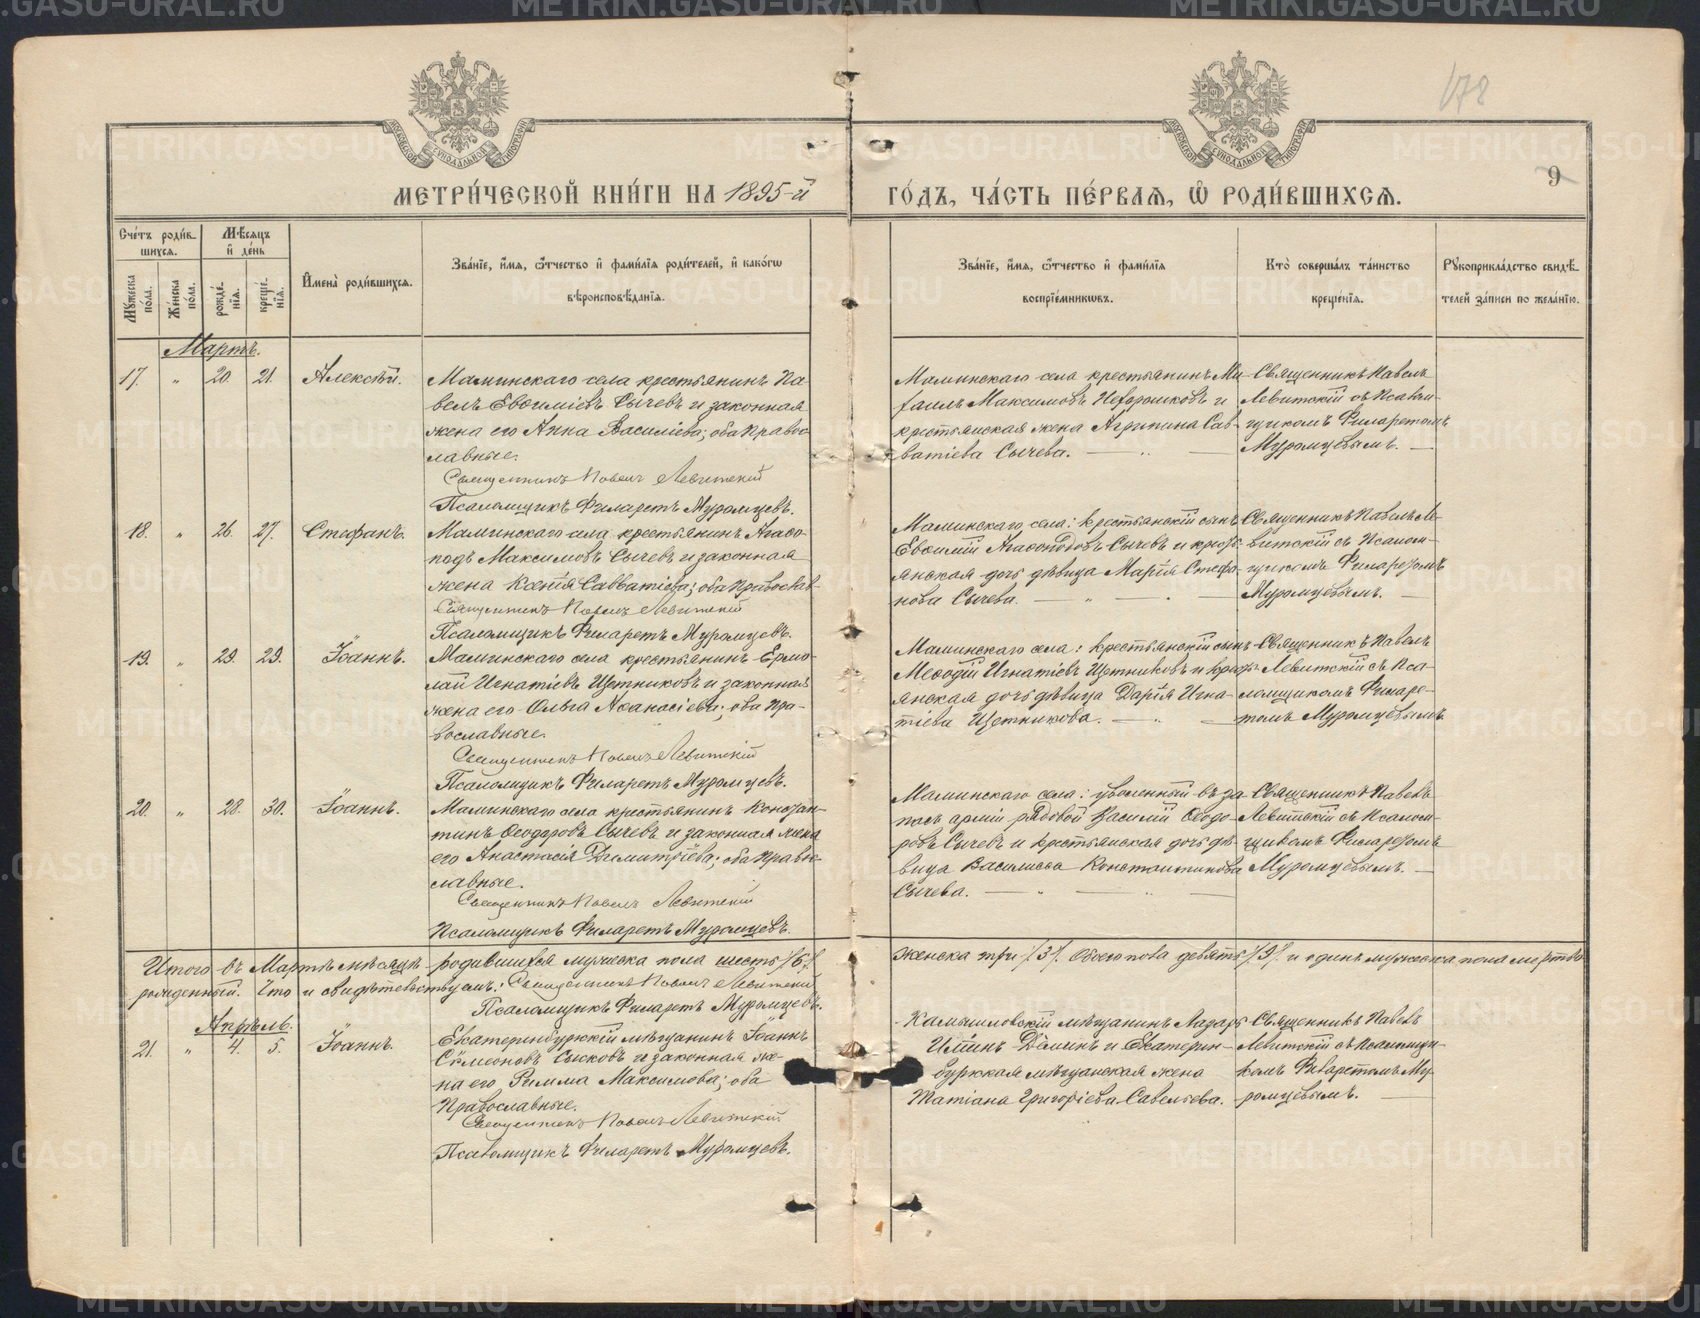 178
9
МЕТРИ́ЧЕСКОЙ КНИ́ГИ НА 1895-й ГО́ДЪ, ЧА́СТЬ ПЕ́РВАЯ, Ѽ РОДИ́ВШИХСЯ.
Сче́тъ роди́в-
шихся.
Мѣ́сяцъ
и҆ де́нь
Мꙋ́жеска по́ла.
Же́нска по́ла.
рожде́нїѧ.
креще́нїѧ.
И҆мена̀ роди́вшихся.
Зва́нїе, и҆́мя, ѻ҆́тчество и҆ фами́лїя роди́телей, и҆ како́гѡ
вѣроисповѣ́данїя.
Зва́нїе, и҆́мя, ѻ҆́тчество и҆ фами́лїя
воспрїе́мникѡвъ.
Кто̀ соверша́лъ та́инство
креще́нїя.
Рꙋкоприкла́дство свидѣ́-
телей за́писи по жела́нїю.
Мартъ.
17. " 20. 21. Алексѣй.
Маминскаго села крестьянинъ Па-
велъ Евѳиміевъ Сычевъ и законная
жена его Анна Василіева; оба право-
славные.
Священникъ Павелъ Левитскій
Псаломщикъ Филаретъ Муромцевъ.
Маминскаго села крестьянинъ Ми-
хаилъ Максимовъ и
крестьянская жена Агрипина Сав-
ватіева Сычева. — " —
Священникъ Павелъ
Левитскій съ Псалом-
щикомъ Филаретомъ
Муромцевымъ. —
18. " 26. 27. Стефанъ.
Маминскаго села крестьянинъ Агаѳо-
подъ Максимовъ Сычевъ и законная
жена Ксенія Савватіева; оба православ-
Священникъ Павелъ Левитскій
Псаломщикъ Филаретъ Муромцевъ.
Маминскаго села: крестьянскій сынъ
Евѳимій Агаѳоподовъ Сычевъ и кресть-
янская дочь дѣвица Марія Стефа-
нова Сычева. — " —
Священникъ Павелъ Ле-
витскій съ Псалом-
щикомъ Филаретомъ
Муромцевымъ. —
19. " 29. 29. Іоаннъ.
Маминскаго села крестьянинъ Ермо-
лай Игнатіевъ Щетниковъ и законная
жена его Ольга Аѳанасіева; оба пра-
вославные.
Священникъ Павелъ Левитскій
Псаломщикъ Филаретъ Муромцевъ.
Маминскаго села: крестьянскій сынъ
Меѳодій Игнатіевъ Щетниковъ и кресть-
янская дочь дѣвица Дарія Игна-
тіева Щетникова. — " —
Священникъ Павелъ
Левитскій съ Пса-
ломщикомъ Филаре-
томъ Муромцевымъ
20. " 28. 30. Іоаннъ.
Маминскаго села крестьянинъ Констан-
тинъ Ѳеодоровъ Сычевъ и законная жена
его Анастасія Димитріева; оба право-
славные.
Священникъ Павелъ Левитскій
Псаломщикъ Филаретъ Муромцевъ.
Маминскаго села: уволенный въ за-
пасъ арміи рядовой Василій Ѳеодо-
ровъ Сычевъ и крестьянская дочь дѣ-
вица Василисса Константинова
Сычева. — " —
Священникъ Павелъ
Левитскій съ Псалом-
щикомъ Филаретомъ
Муромцевымъ. —
Итого въ Мартѣ мѣсяцѣ родившихся мужеска пола шесть /6/. женска три /3/. Обоего пола девять /9/. и одинъ мужеска пола мертво-
рожденный. Что и свидѣтельствуемъ: Священникъ Павелъ Левитскій
Псаломщикъ Филаретъ Муромцевъ.
Апрѣль.
21. " 4. 5. Іоаннъ.
Екатеринбургскій мѣщанинъ Іоаннъ
Сѵмеоновъ Сысковъ и законная же-
на его Римма Максимова; оба
Православные.
Священникъ Павелъ Левитскій
Псаломщикъ Филаретъ Муромцевъ.
Камышловскій мѣщанинъ Лазарь
Дёминъ и Екатерин-
бургская мѣщанская жена
Татіана Григоріева Савельева.
Священникъ Павелъ
Левитскій съ Псаломщи-
комъ Филаретомъ Му-
ромцевымъ. —
METRIKI.GASO-URAL.RU